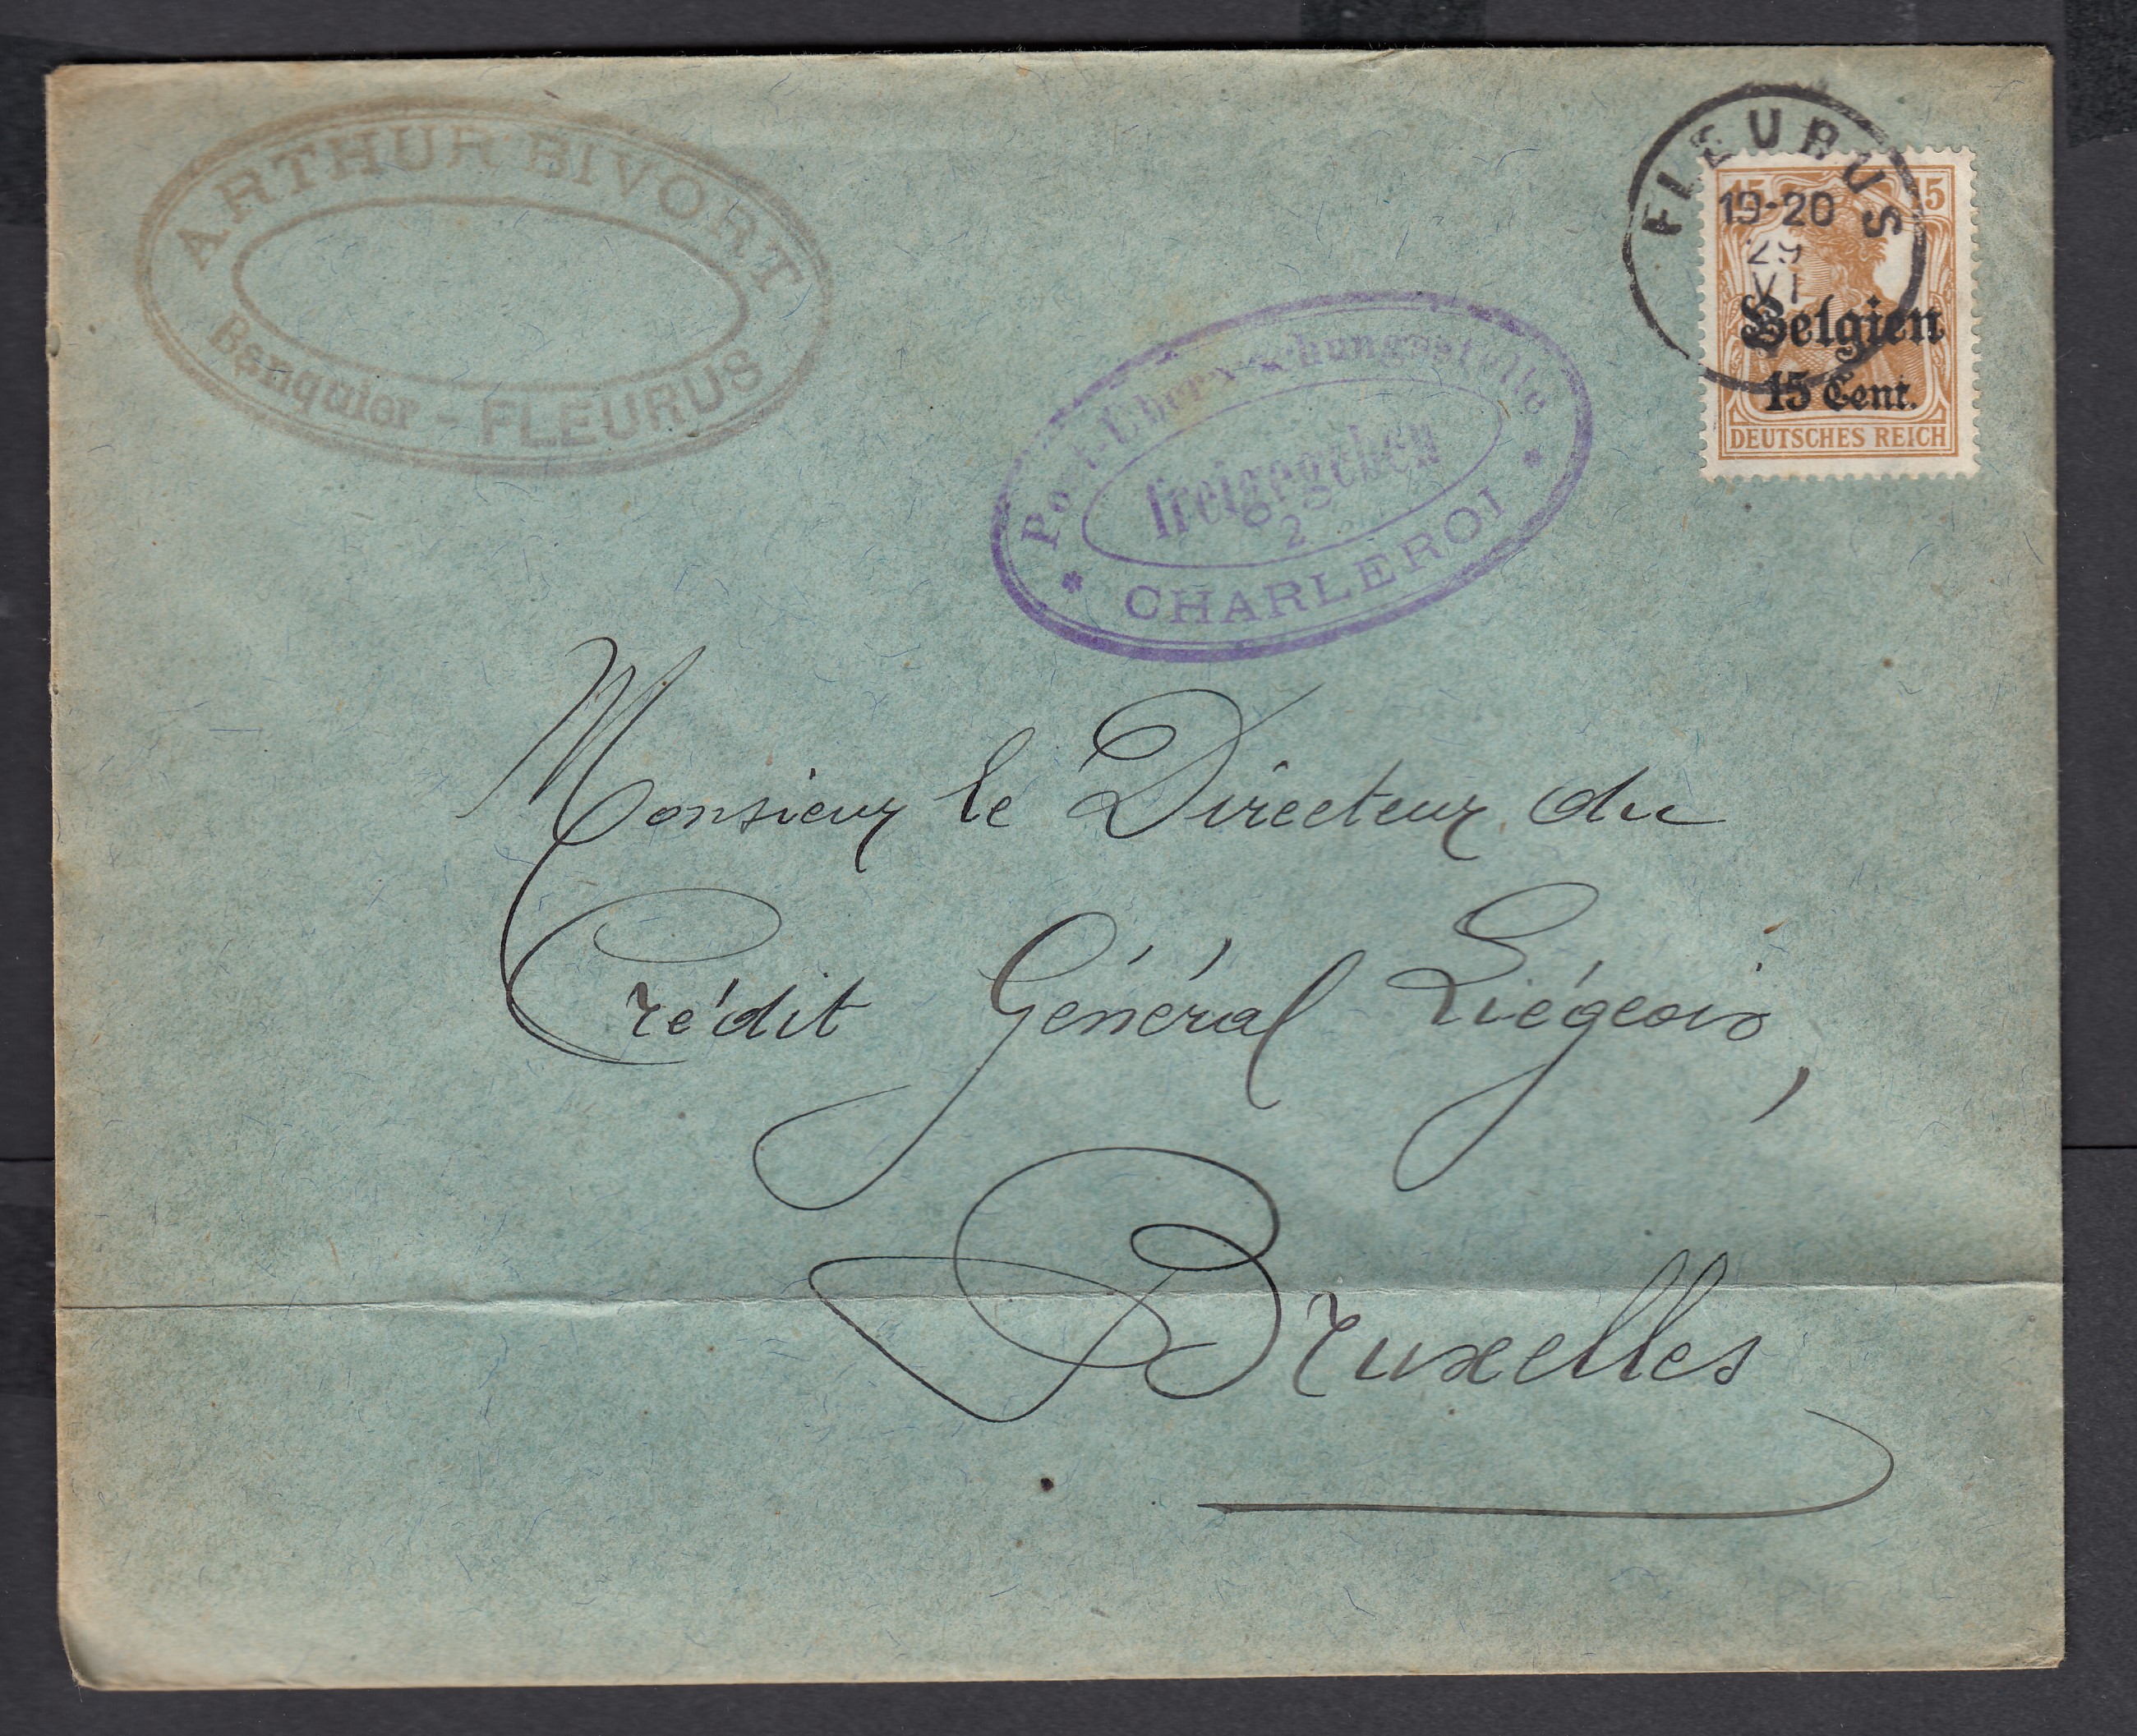 ARTHUR BIVORT
Banquier - FLEURUS
FLEURUS
19-20
29
VI
15 15
Belgien
15 Cent.
DEUTSCHES REICH
Post-Überwachungsstelle
freigegeben
2
* CHARLEROI *
Monsieur le Directeur du
Crédit Général Liégeois,
Bruxelles